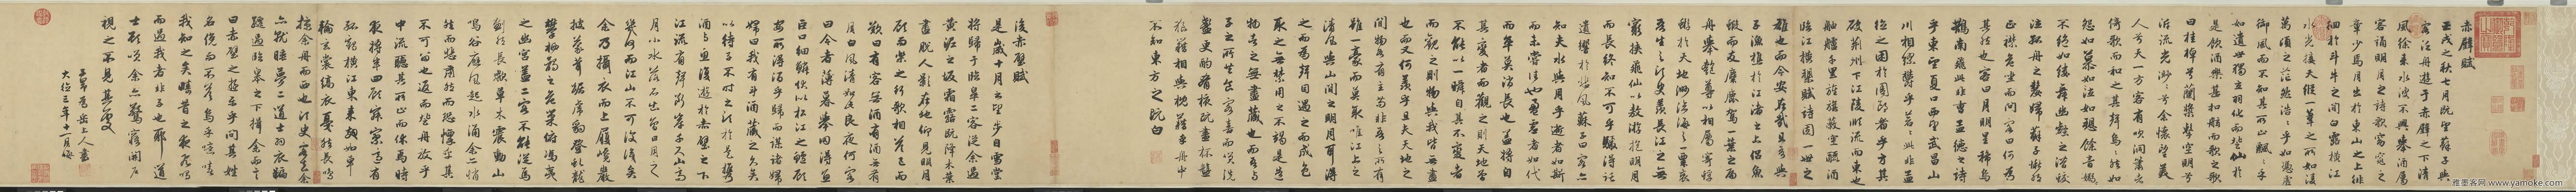 赤壁賦
壬戌之秋七月既望蘇子與
客泛舟遊于赤壁之下清
風徐來水波不興舉酒屬
客誦明月之詩歌窈窕之
章少焉月出於東山之上徘
徊於斗牛之間白露橫江
水光接天縱一葦之所如凌
萬頃之茫然浩浩乎如憑虛
御風而不知其所止飄飄乎
如遺世獨立羽化而登仙於
是飲酒樂甚扣舷而歌之歌
曰桂棹兮蘭槳擊空明兮
泝流光渺渺兮余懷望美
人兮天一方客有吹洞簫者
倚歌而和之其聲烏烏然如
怨如慕如泣如訴餘音嫋嫋
不絕如縷舞幽壑之潛蛟
泣孤舟之嫠婦蘇子愀然
正襟危坐而問客曰何為
其然也客曰月明星稀烏
鵲南飛此非曹孟德之詩
乎東望夏口西望武昌山
川相繆鬱乎蒼蒼此非孟
德之困於周郎者乎方其
破荊州下江陵順流而東也
舳艫千里旌旗蔽空釃酒
臨江橫槊賦詩固一世之
雄也而今安在哉況吾與
子漁樵於江渚之上侶魚
鰕而友麋鹿駕一葉之扁
舟舉匏尊以相屬寄蜉
蝣於天地渺滄海之一粟哀
吾生之須臾羨長江之無
窮挾飛仙以遨遊抱明月
而長終知不可乎驟得託
遺響於悲風蘇子曰客亦
知夫水與月乎逝者如斯
而未嘗往也盈虛者如代
而卒莫消長也蓋將自
其變者而觀之則天地曾
不能以一瞬自其不變者
而觀之則物與我皆無盡
也而又何羨乎且夫天地之
間物各有主苟非吾之所有
雖一毫而莫取惟江上之
清風與山間之明月耳得
之而為聲目遇之而成色
取之無禁用之不竭是造
物者之無盡藏也而吾與
子之所共食客喜而笑洗
盞更酌肴核既盡杯盤
狼籍相與枕藉乎舟中
不知東方之既白
後赤壁賦
是歲十月之望步自雪堂
將歸于臨皋二客從余過
黃泥之坂霜露既降木葉
盡脫人影在地仰見明月
顧而樂之行歌相答已而
歎曰有客無酒有酒無肴
月白風清如此良夜何客
曰今者薄暮舉網得魚
巨口細鱗狀似松江之鱸顧
安所得酒乎歸而謀諸婦
婦曰我有斗酒藏之久矣
以待子不時之須於是攜
酒與魚復遊於赤壁之下
江流有聲斷岸千尺山高
月小水落石出曾日月之
幾何而江山不可復識矣
余乃攝衣而上履巉巖
披蒙茸踞虎豹登虬龍
攀栖鶻之危巢俯馮夷
之幽宮蓋二客不能從焉
劃然長嘯草木震動山
鳴谷應風起水涌余亦悄
然而悲肅然而恐凜乎其
不可留也返而登舟放乎
中流聽其所止而休焉時
夜將半四顧寂寥適有
孤鶴橫江東來翅如車
輪玄裳縞衣戛然長鳴
掠余舟而西也須臾客去余
亦就睡夢二道士羽衣翩
躚過臨皋之下揖余而言
曰赤壁之遊樂乎問其姓
名俛而不答烏乎噫嘻
我知之矣疇昔之夜飛鳴
而過我者非子也耶道
士顧笑余亦驚寤開戶
視之不見其處
大德三年十一月